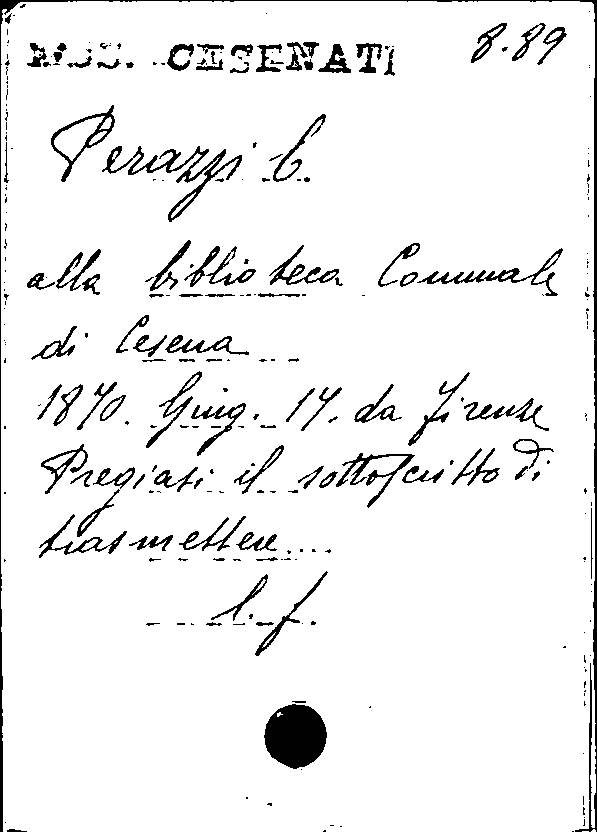 MSS. CESENATI 8.89
Perazzi C.
alla biblioteca Comunale
di Cesena
1870. Giug. 14. da Firenze
Pregiasi il sottoscritto di
trasmettere....
l. f.